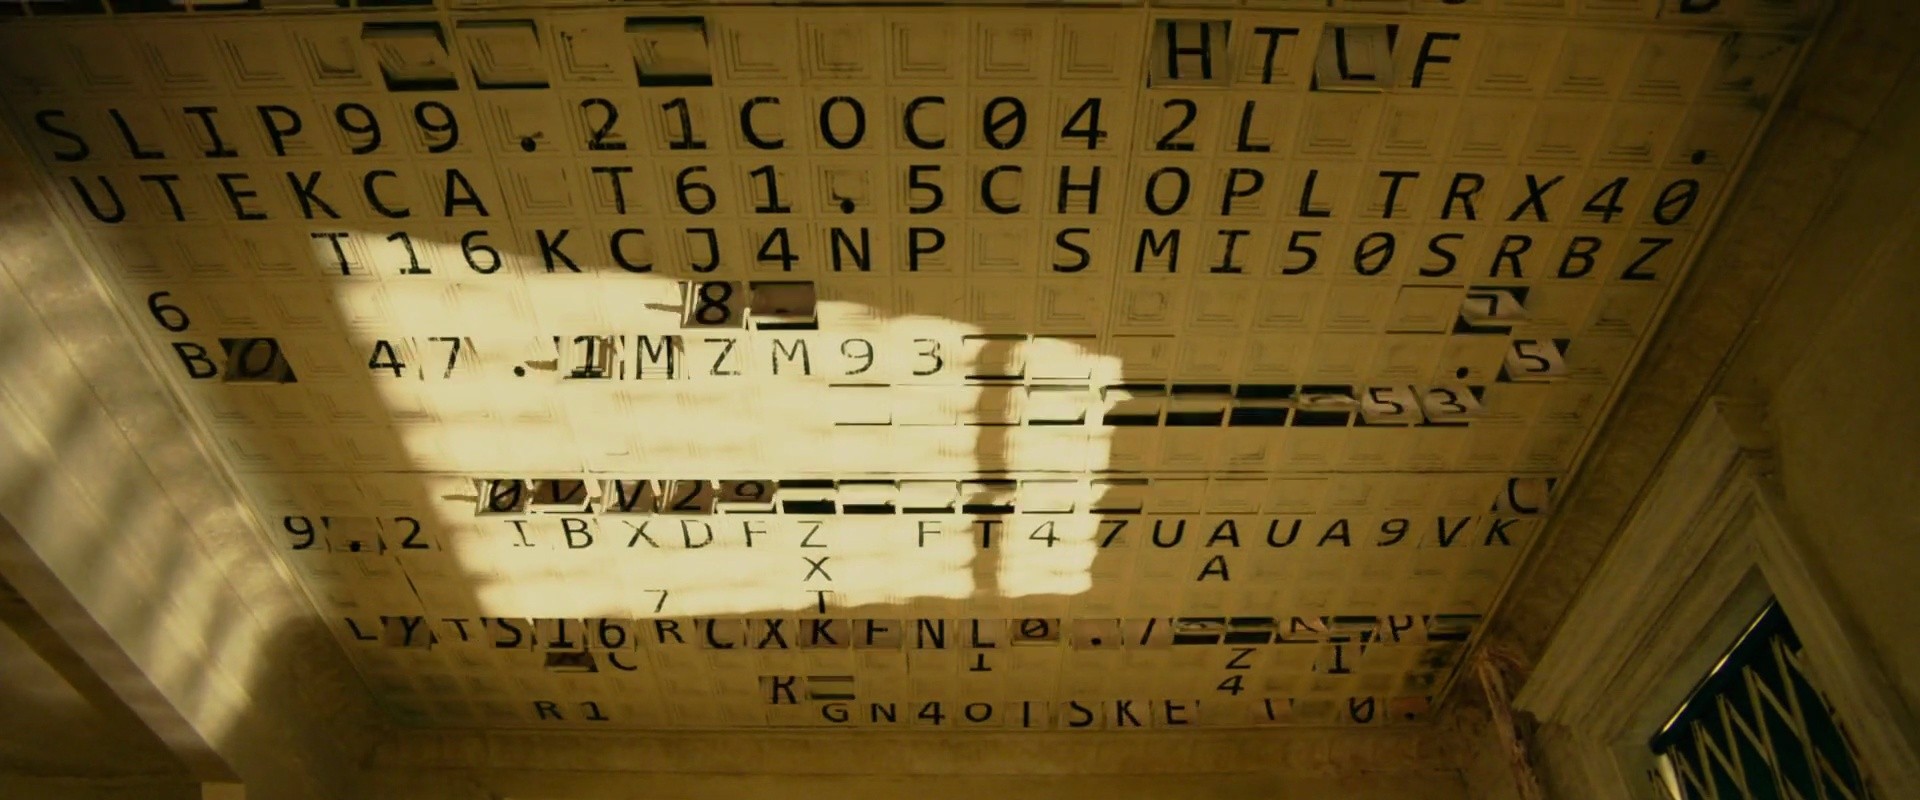 HTLF
SLIP99.21COC042L
UTEKCA T61.5CHOPLTRX40.
T16KCJ4NP SMI50SRBZ
6 8
BO 47.1MZM93 . 5
53
0VV29 C
9.2 IBXDFZ FT47UAUA9VK
X A
7 T
LYTSI6RCXKFNL0.7 P
C I Z I
R 4
R1 GN4OISKE 0.